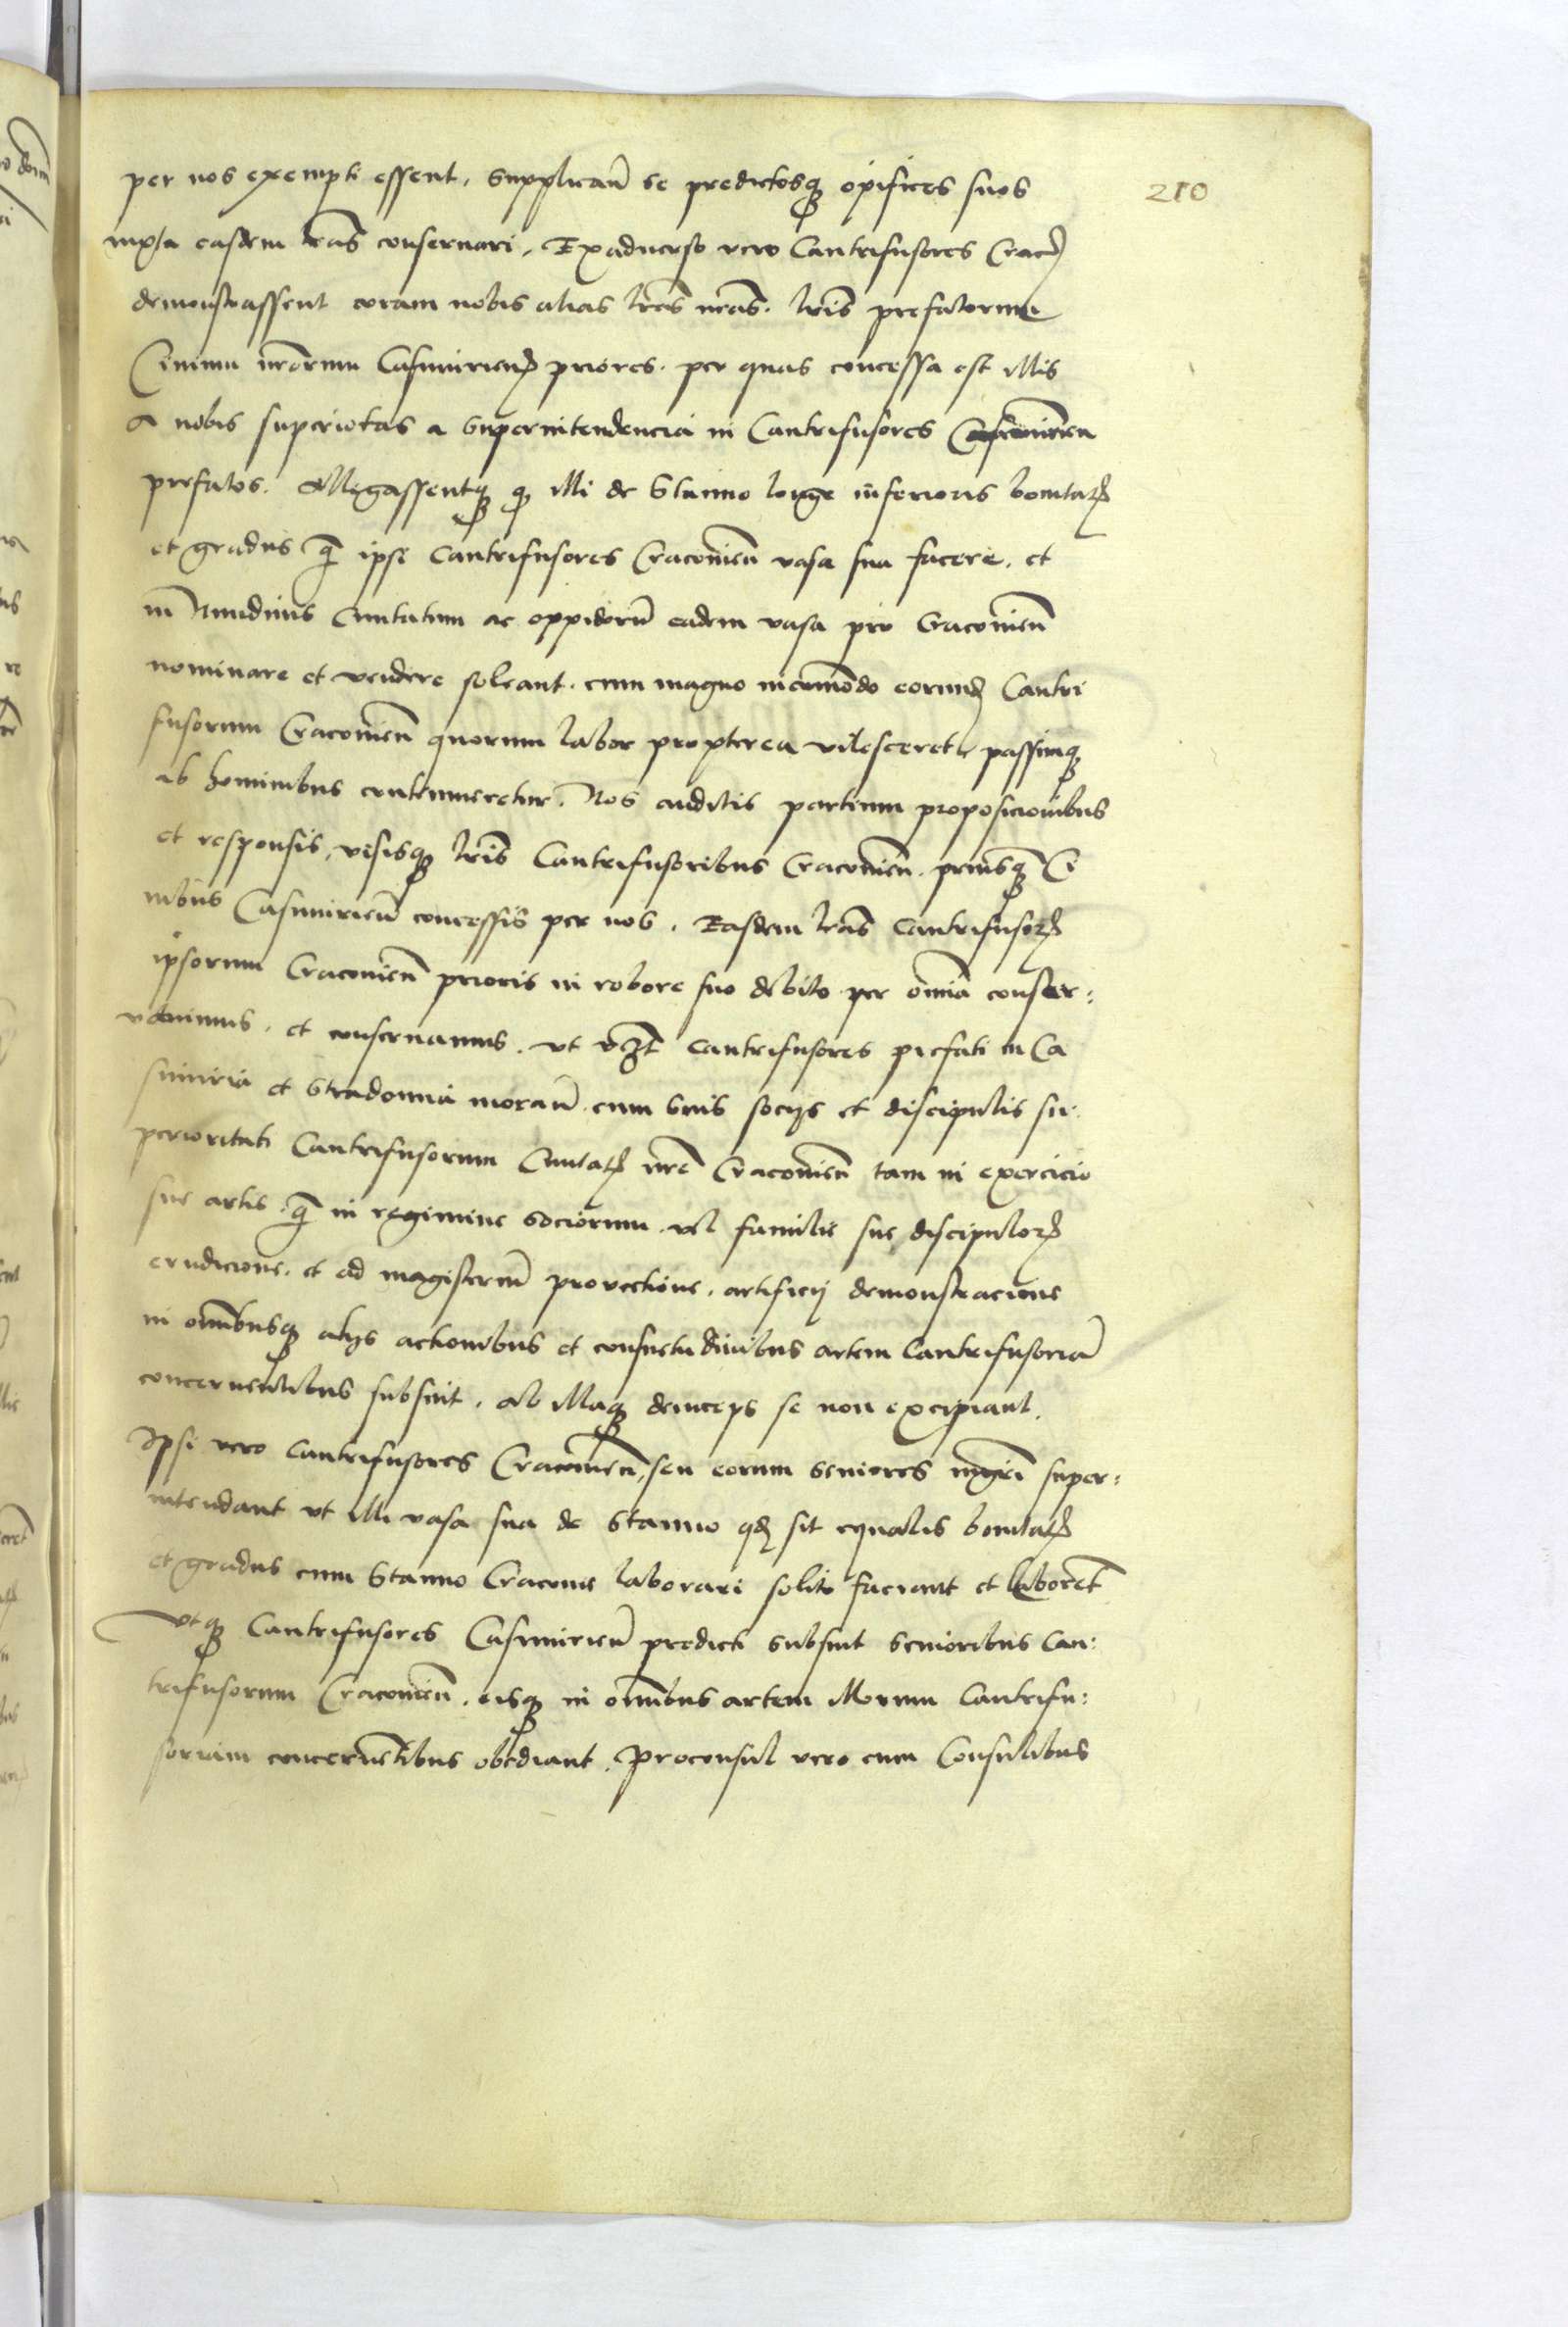 per nos exempti essent, supplicarũ se predictosq opifices suos
210
iuxta easdem lras conseruari. Exaduerso vero Cantrifusores Cracõ
demonstrassent coram nobis alias lras nras. lris prefatorum
Ciuium nrorum Casimirieñ priores. per quas concessa est illis
a nobis superiotas a superintendencia in Cantrifusores Casimirien
prefatos. Allegassentq q illi de Stanno longe inferioris bonitatis
et gradus q̃ ipsi Cantrifusores Cracouieñ vasa sua facere. et
in Nundinis Ciuitatum ac oppidorũ eadem vasa pro Cracouieñ
nominare et vendere soleant. cum magno incomõdo eorund Cantri
fusorum Cracouieñ quorum labor propterea vilesceret passimq
ab hominibus contemneretur. Nos auditis partium proposicionibus
et responsis, visisq lris Cantrifusoribus Cracouieñ. priusq̃ Ci
uibus Casimirieñ concessis per nos. Easdem lras Cantrifusorz
ipsorum Cracouieñ prioris in robore suo debito per omnia conser:
uauimus. et conseruamus. vt vzt Cantrifusores prefati in Ca
simiria et Stradomia morañ. cum suis socijs et discipulis su
perioritati Cantrifusorum Ciuitatis nre Cracouieñ tam in exercicio
sue artis. q̃ in regimine sociorum. vel familie sue, discipulorz
erudicione. et ad magisteriũ prouectione. artificij demonstracione
in omĩbusq alijs actionibus et consuetudinibus artem Cantrifusoriã
concernentibus subsint. Ab illaq deinceps se non excipiant.
Ipsi vero Cantrifusores Cracouieñ, seu eorum seniores mgrĩ super:
intendant vt illi vasa sua de Stanno qd sit equalis bonitatis
et gradus cum Stanno Cracouie laborari solito faciant et laborẽt
vtq Cantrifusores Casimirieñ predicti subsint senioribus Can:
trifusorum Cracouieñ. eisq in omĩbus artem illorum Cantrifu:
soriam concernẽtibus obediant. Proconsul vero cum Consulibus